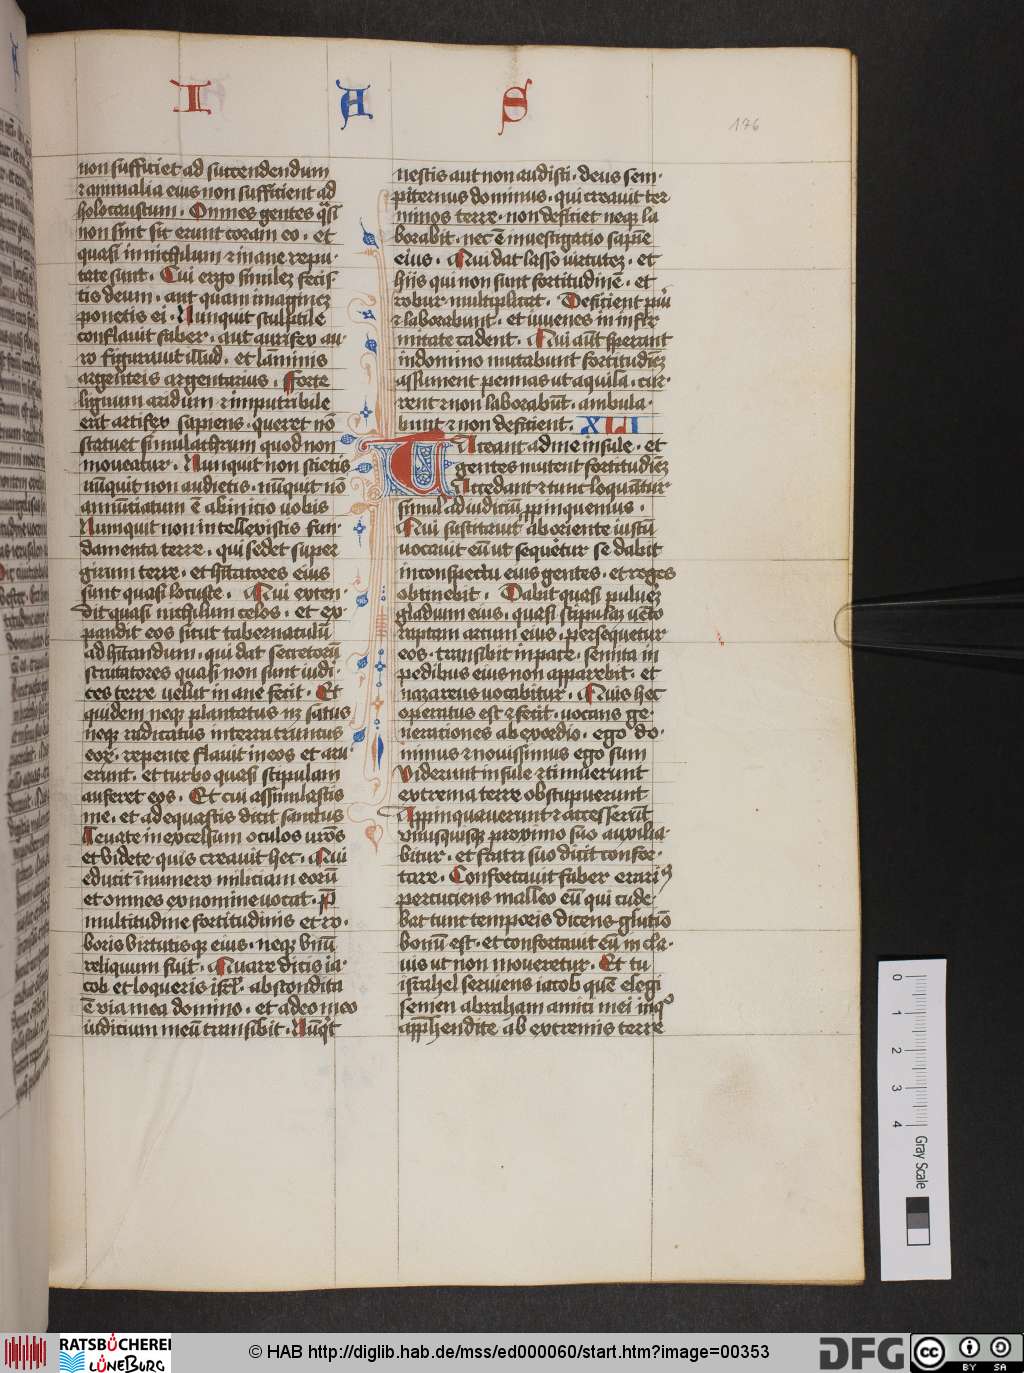 I A S
176
non sufficiet ad succendendum
⁊ animalia eius non sufficient ad
holocaustum . Omnes gentes q̄si
non sint sic erunt coram eo . et
quasi in nichilum ⁊ inane repu-
tate sunt . Cui ergo similez fecis-
tis deum . aut quam imaginez
ponetis ei . Nunquit sculptile
conflauit faber . aut aurifex au-
ro figurauit illud . et laminis
argenteis argentarius . Forte
lignum aridum ⁊ imputribile
erit artifex sapiens . queret nō
statuet simulachrum quod non
moueatur . Nunquit non scietis
nūnquit non audietis . nūnquit nō
annūtiatum ē ab inicio uobis
Numquit non intellexistis fun-
damenta terre . qui sedet super
girum terre . et hītatores eius
sunt quasi locuste . Qui exten-
dit quasi nichilum celos . et ex-
pandit eos sicut tabernaculū
ad hītandum . qui dat secretorū
scrutatores quasi non sunt iudi-
ces terre uelut inane fecit . Et
quidem neqȝ plantatus nȝ satus
neqȝ radicatus in terra truncus
eorȝ . repente flauit in eos et aru-
erunt . et turbo quasi stipulam
auferet eos . Et cui assimilastis
me . et adequastis dicit sanctus
Leuate in excelsum oculos urōs
et videte quis creauit hec . Qui
educit ī numero miliciam eorū
et omnes ex nomine uocat . P̄
multitudine fortitudinis et ro-
boris virtutisqȝ eius . neqȝ vnū
reliquum fuit . Quare dicis ia-
cob et loqueris isrl̄ . abscondita
ē via mea domino . et a deo meo
iudicium meū transibit . Nūq̇t
nescis aut non audisti . deus sem-
piternus dominus . qui creauit ter
minos terre . non deficiet neqȝ la
borabit . nec ē inuestigatio sapiē
eius . Qui dat lasso virtutez . et
hiis qui non sunt fortitudinē . et
robur multiplicat . Deficient pūi
⁊ laborabunt . et iuuenes in infir
mitate cadent . Qui aūt sperant
in domino mutabunt fortitudinēz
assument pennas ut aquila . cur-
rent ⁊ non laborabūt . ambula-
bunt ⁊ non deficient . XLI
Taceant ad me insule . et
gentes mutent fortitudinēz
Accedant ⁊ tunc loquātur
simul ad iudiciū ꝓpinquemus .
Qui suscitauit ab oriente iustū
uocauit eū ut sequētur se dabit
in conspectu eius gentes . et reges
obtinebit . Dabit quasi puluez
gladium eius . quasi stipulaz uēto
raptam arcum eius . persequetur
eos . transibit in pace . semita in
pedibus eius non apparebit . et
nazareus uocabitur . Quis hec
operatus est ⁊ fecit . uocans ge-
nerationes ab exordio . ego do-
minus ⁊ nouissimus ego sum
Viderunt insule ⁊ timuerunt
extrema terre obstupuerunt
Appinquauerunt ⁊ accesserūt
vnusquisqȝ proximo suo auxilia-
bitur . et fratri suo dicit confor-
tare . Confortauit faber erariꝰ
percuciens malleo eū qui cude-
bat tunc temporis dicens glutīo
bonū est . et confortauit eū in cla-
uis ut non moueretur . Et tu
israhel serviens iacob quē elegi
semen abraham amici mei in qͦ
app̄hendi te ab extremis terre
0 1 2 3 4 Gray Scale
RATSBÜCHEREI
LÜNEBURG
© HAB http://diglib.hab.de/mss/ed000060/start.htm?image=00353
DFG
cc BY SA